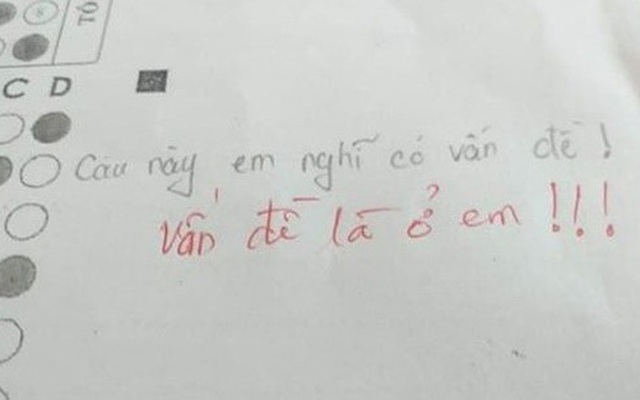 TÔ
C D
Câu này em nghĩ có vấn đề!
Vấn đề là ở em!!!